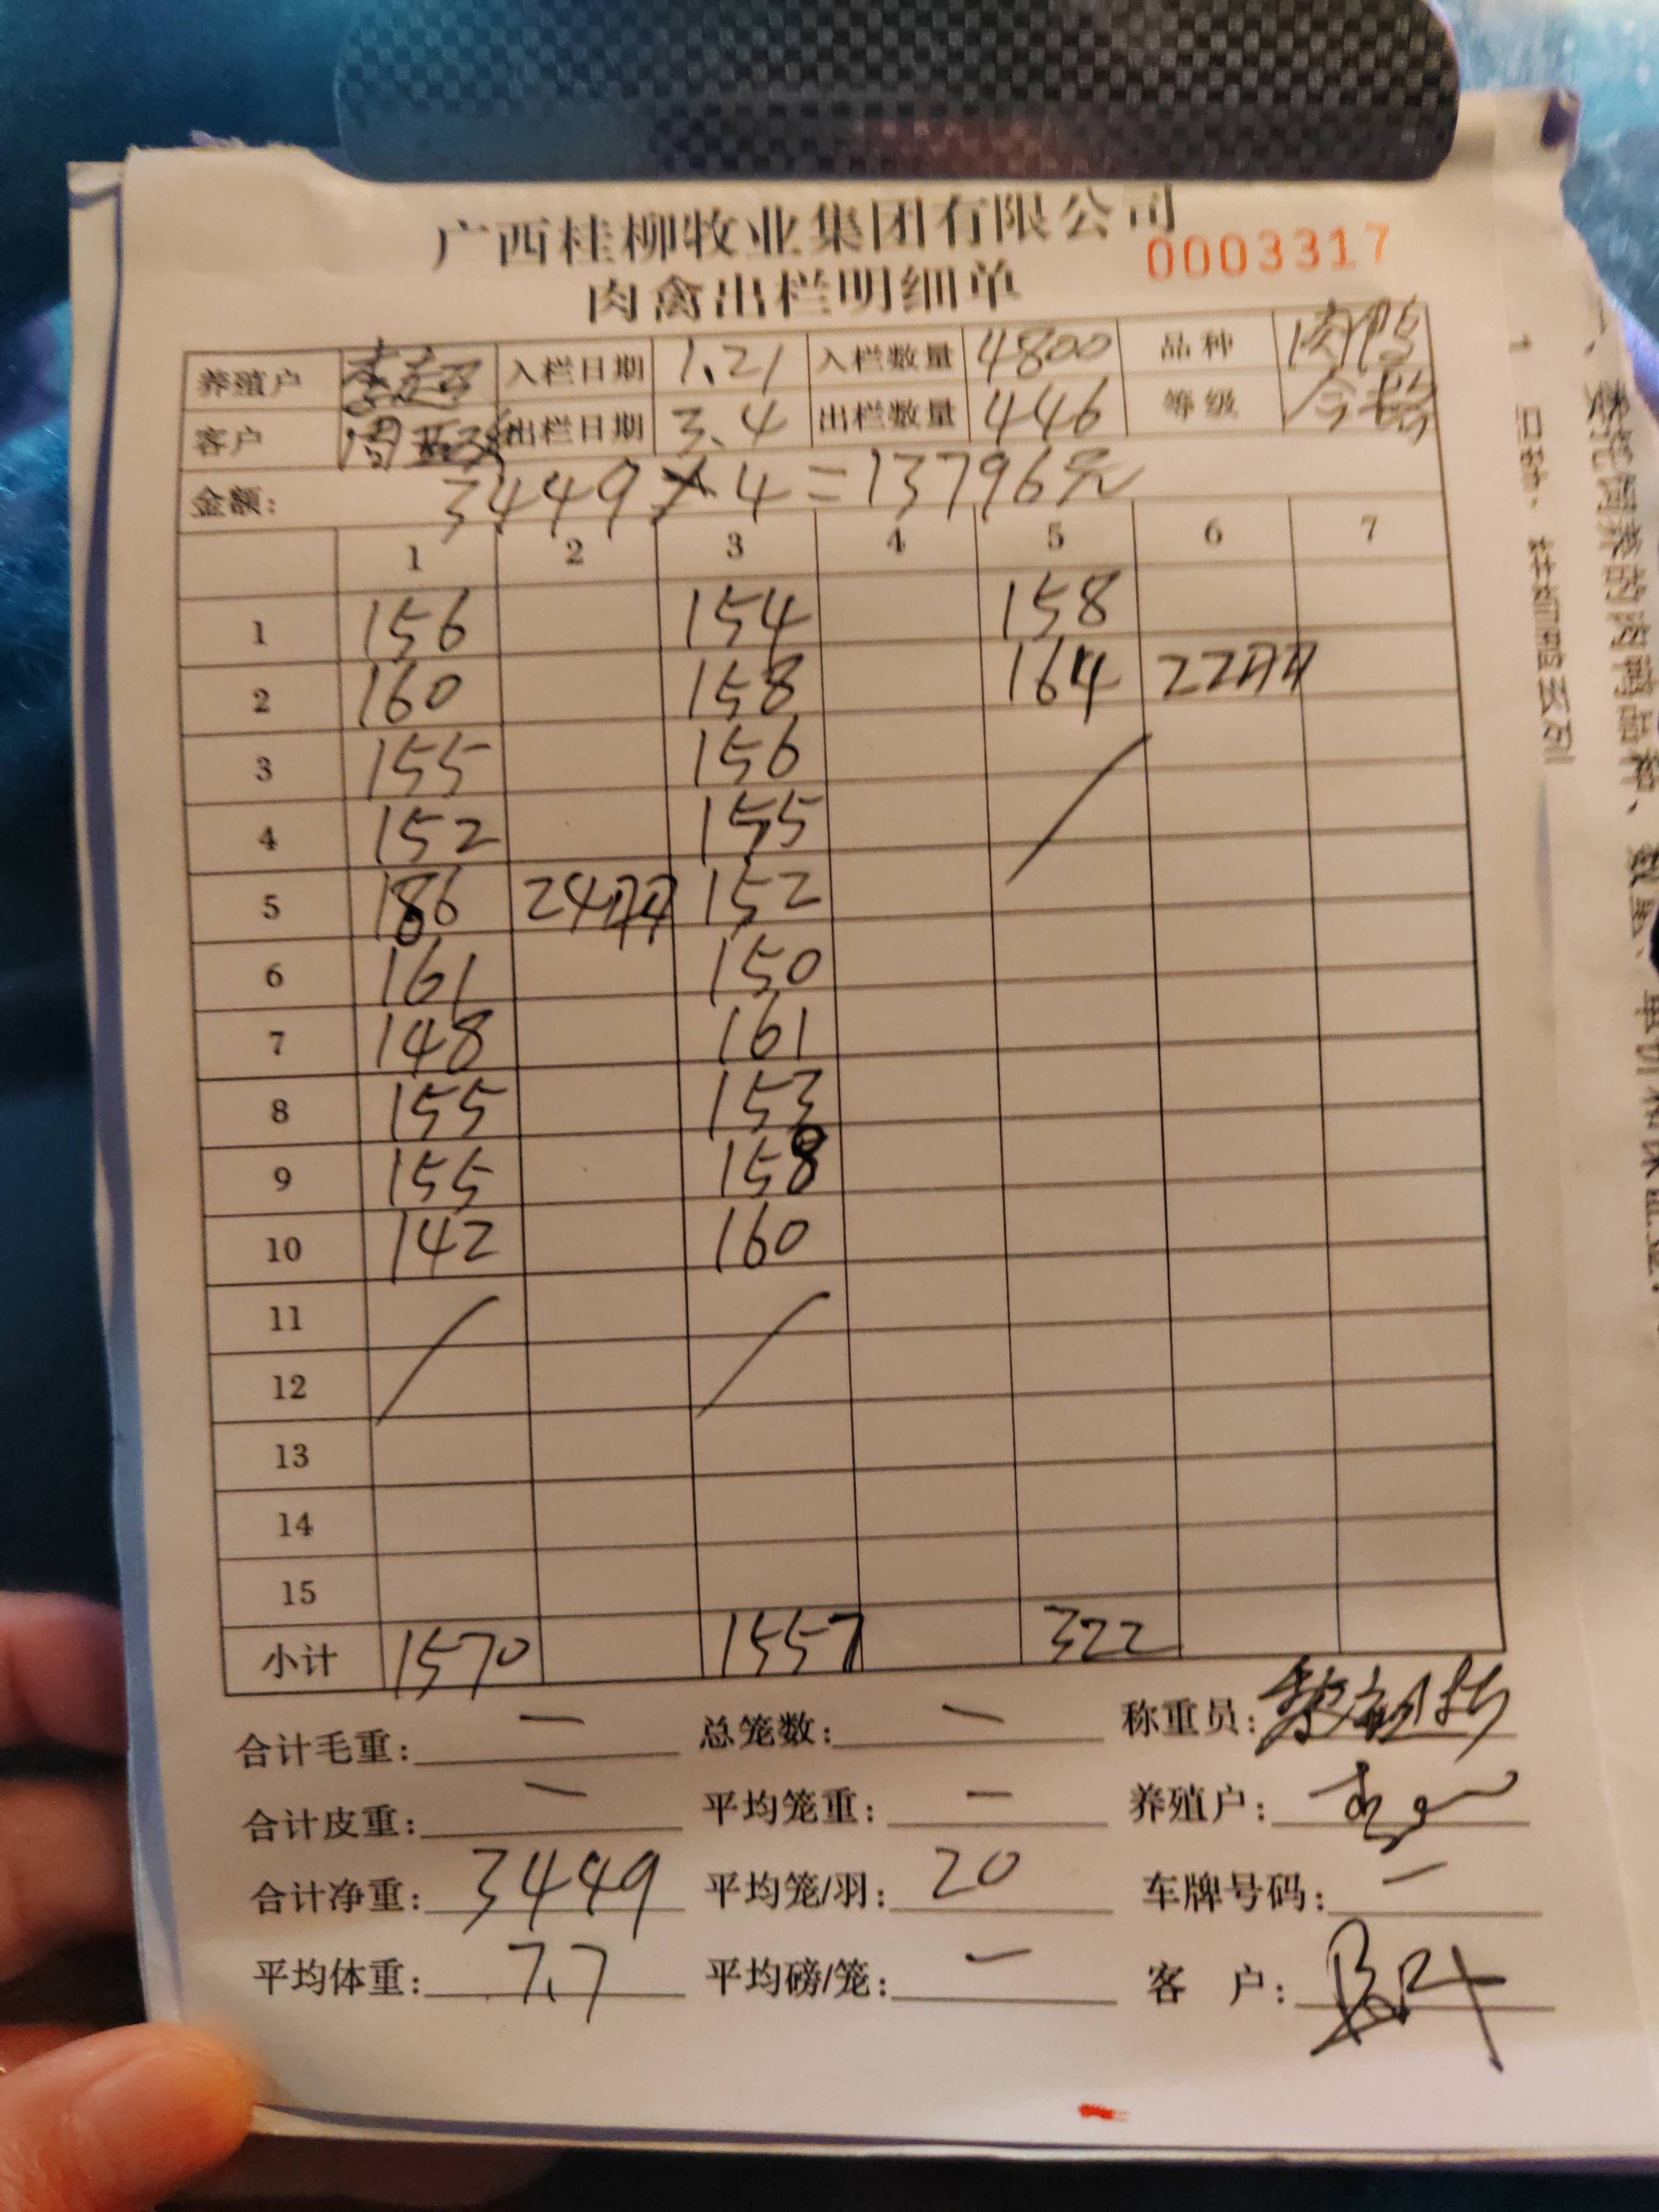 广西桂柳牧业集团有限公司
0003317
肉禽出栏明细单
养殖户 李超 入栏日期 1.21 入栏数量 4800 品种 肉鸭
客户 出栏日期 3.4 出栏数量 446 等级
金额: 3449×4=13796元
1 2 3 4 5 6 7
1 156 154 158
2 160 158 164 22
3 155 156
4 152 155
5 186 24 152
6 161 150
7 148 161
8 155 153
9 155 158
10 142 160
11
12
13
14
15
小计 1570 1557 322
合计毛重: — 总笼数: — 称重员:
合计皮重: — 平均笼重: — 养殖户:
合计净重: 3449 平均笼/羽: 20 车牌号码: —
平均体重: 7.7 平均磅/笼: — 客 户: